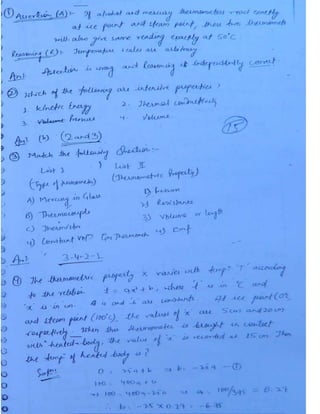 ① Assertion (A):- If alcohol and mercury thermometers read exactly
at ice point and steam point, these two thermometers
will also give same reading exactly at 50°C.
Reasoning (R):- Temperature scales are arbitrary.
Ans: Assertion is wrong and reasoning is independently correct
② Which of the following are intensive properties?
1. Kinetic Energy 2. Thermal conductivity
3. Pressure 4. Volume
Ans (b) (2 and 3)
③ Match the following Question:-
List I List II
(Type of thermometers) (Thermometric Property)
A) Mercury in Glass 1) Pressure
B) Thermocouple 2) Resistance
C) Thermistor 3) Volume or length
4) Constant Vol. Gas Thermometer 4) Emf
Ans: 3-4-2-1
④ The thermometric property x varies with temp. 'T' according
to the relation t = ax²+b, where t is in °C and
x is in cm. a and b are constants. At ice point (0°C)
and steam point (100°C), the values of x are 5cm and 20cm
respectively. When this thermometer is brought in contact
with heated body, the value of 'x' is recorded as 15cm. Then
the temp. of heated body is?
Soln: 0 = 25a+b ⇒ b = -25a -①
100 = 400a+b
⇒ 100 = 400a-25a ⇒ a = 100/375 = 0.27
∴ b = -25×0.27 = -6.75